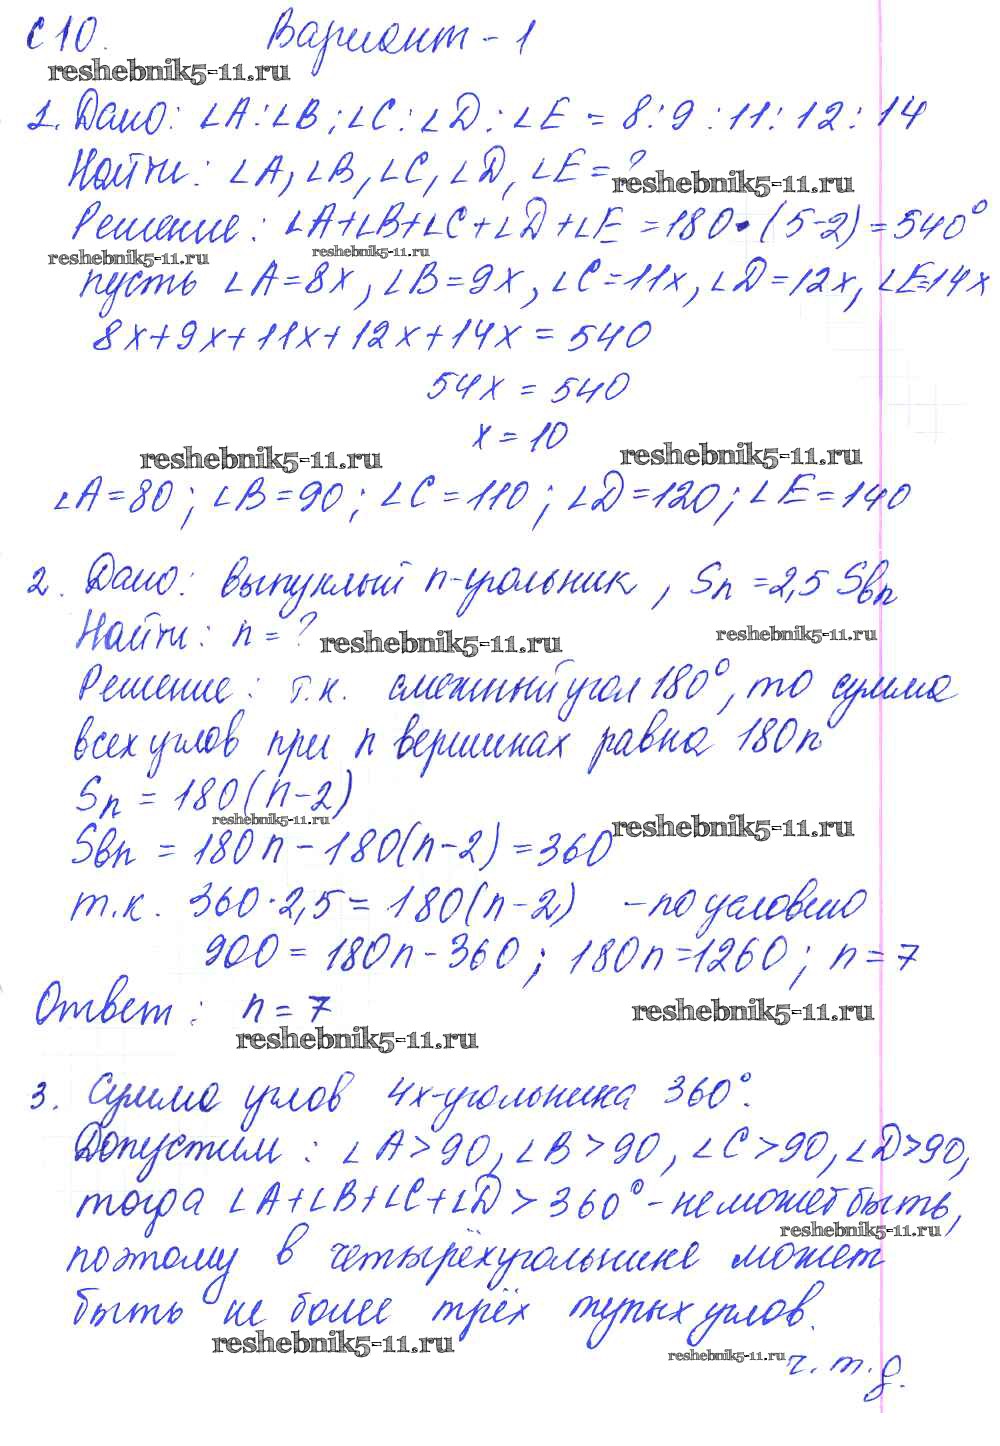 С 10. Вариант - 1
reshebnik5-11.ru
1. Дано: ∠A:∠B;∠C:∠D:∠E = 8:9:11:12:14
Найти: ∠A,∠B,∠C,∠D,∠E=?
reshebnik5-11.ru
Решение: ∠A+∠B+∠C+∠D+∠E=180•(5-2)=540°
reshebnik5-11.ru reshebnik5-11.ru
пусть ∠A=8x,∠B=9x,∠C=11x,∠D=12x,∠E=14x
8x+9x+11x+12x+14x=540
54x=540
x=10
reshebnik5-11.ru reshebnik5-11.ru
∠A=80;∠B=90;∠C=110;∠D=120;∠E=140
2. Дано: выпуклый n-угольник, Sn=2,5 Sвn
Найти: n=?
reshebnik5-11.ru reshebnik5-11.ru
Решение: т.к. смежный угол 180°, то сумма
всех углов при n вершинах равна 180n
Sn = 180(n-2)
reshebnik5-11.ru reshebnik5-11.ru
Sвn = 180n-180(n-2)=360
т.к. 360·2,5=180(n-2) -по условию
900=180n-360; 180n=1260; n=7
Ответ: n=7
reshebnik5-11.ru reshebnik5-11.ru
3. Сумма углов 4х-угольника 360°.
Допустим: ∠A>90,∠B>90,∠C>90,∠D>90,
тогда ∠A+∠B+∠C+∠D>360°-не может быть,
reshebnik5-11.ru
поэтому в четырёхугольнике может
быть не более трёх тупых углов.
reshebnik5-11.ru reshebnik5-11.ru
ч.т.д.